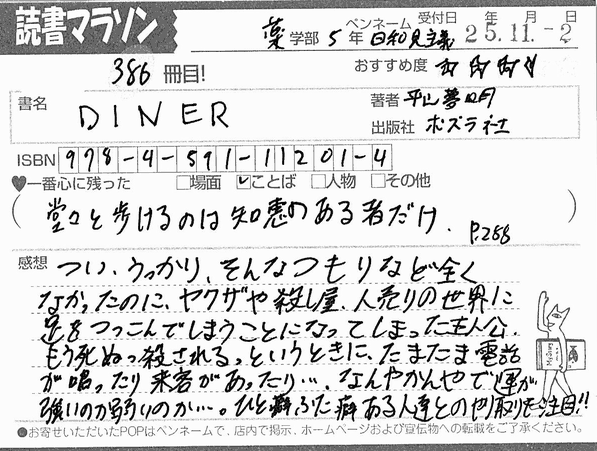 読書マラソン
薬学部 5年 ペンネーム 日和見主義 受付日 25年11月-2日
386冊目! おすすめ度
書名 DINER 著者 平山夢明
出版社 ポプラ社
ISBN 978-4-591-11201-4
♥一番心に残った □場面 ☑ことば □人物 □その他
(堂々と歩けるのは知恵のある者だけ. P.288)
感想 つい、うっかり、そんなつもりなど全く
なかったのに、ヤクザや殺し屋、人売りの世界に
足をつっこんでしまうことになってしまった主人公.
もう死ぬっ殺されるっというときに、たまたま電話
が鳴ったり来客があったり…、なんやかんやで運が
強いのか弱いのか…。ひと癖ふた癖ある人達とのやり取りも注目!!
●お寄せいただいたPOPはペンネームで、店内で掲示、ホームページおよび宣伝物への転載をご了承ください。